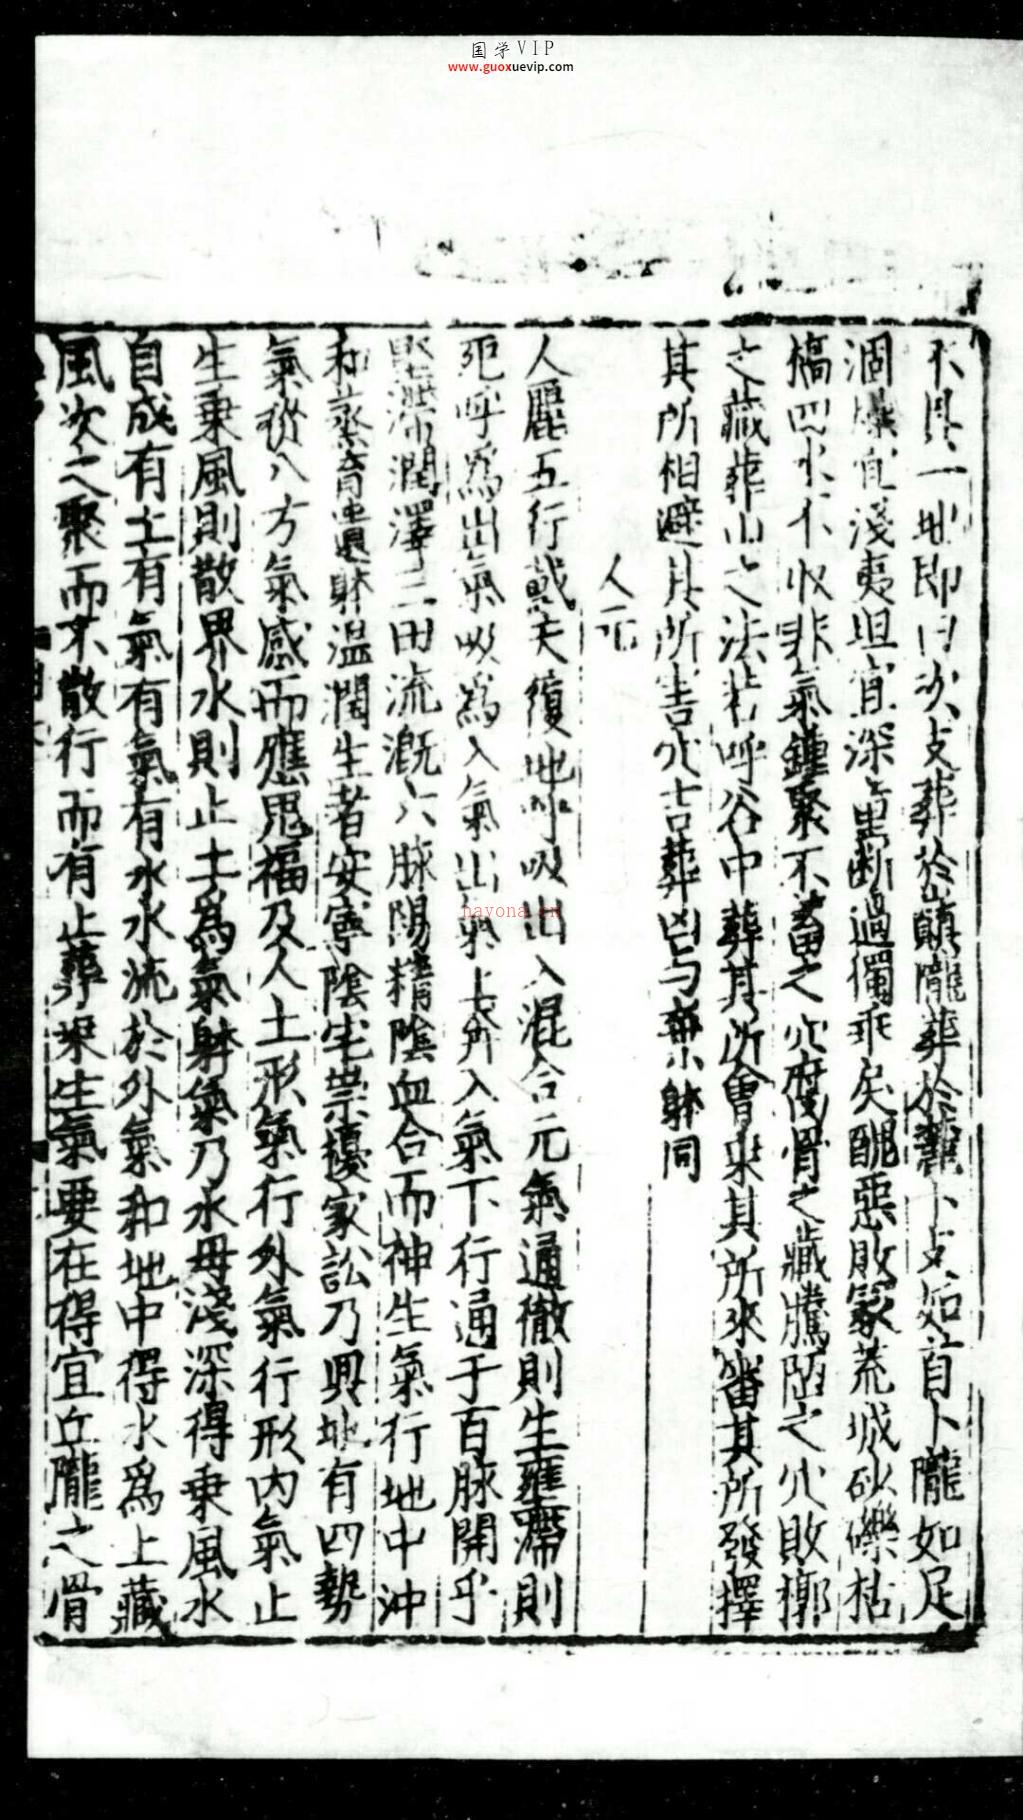 国学VIP
www.guoxuevip.com
不具一地即曰次支葬於巔隴葬於麓卜支如首卜隴如足
涸燥宜淺夷坦宜深高壟断過獨乖戾醜惡敗冢荒城砂礫枯
槁四水不收非氣鍾聚不畜之穴腐骨之藏騰陋之穴敗槨
之藏葬山之法若呼谷中葬其所會乘其所來審其所發擇
其所相避其所害穴吉葬凶与棄躰同
人元
人麗五行戴天復地呼吸出入混合元氣通徹則生壅滯則
死呼爲出氣吸爲入氣出氣上升入氣下行通于百脉開乎
潤澤三田流溉六脉陽精陰血合而神生氣行地中沖
和蒸育遺躰温潤生者安寧陰宅祟擾家訟乃興地有四勢
氣從八方氣感而應鬼福及人土形氣行外氣行形内氣止
生乗風則散界水則止土爲氣躰氣乃水母淺深得乗風水
自成有土有氣有氣有水水流於外氣和地中得水爲上藏
風次之聚而不散行而有止葬乗生氣要在得宜丘隴之骨
nayona.cn